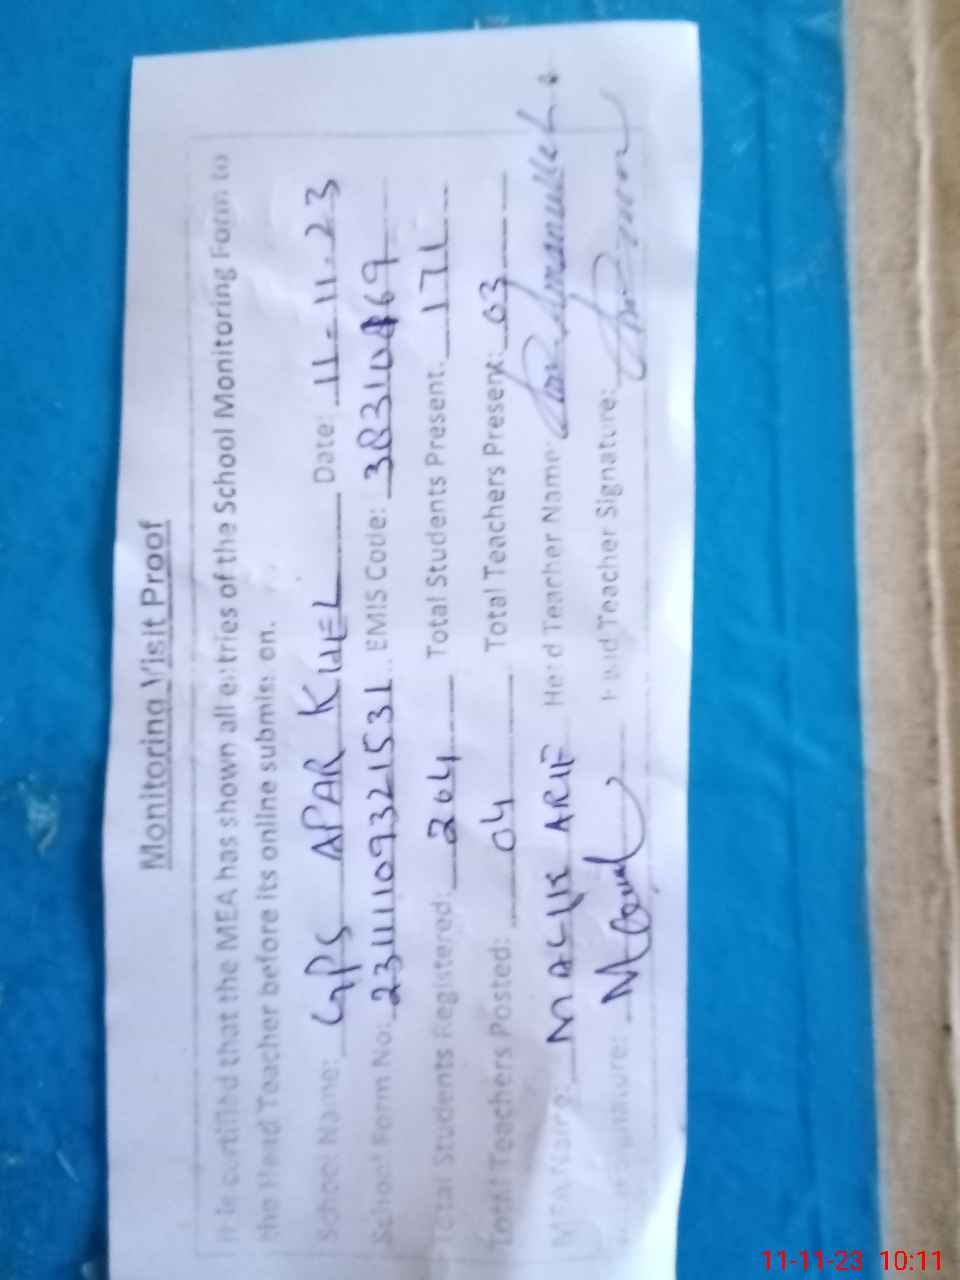 Monitoring Visit Proof
It is certified that the MEA has shown all entries of the School Monitoring Form to
the Head Teacher before its online submission.
School Name: GPS APAR KHEL Date: 11-11-23
School Form No: 231111109321531 EMIS Code:
Total Students Registered: 264 Total Students Present: 171
Total Teachers Posted: 04 Total Teachers Present: 03
MEA Name: MALIK ARIF Head Teacher Name:
Signature: Head Teacher Signature:
11-11-23 10:11